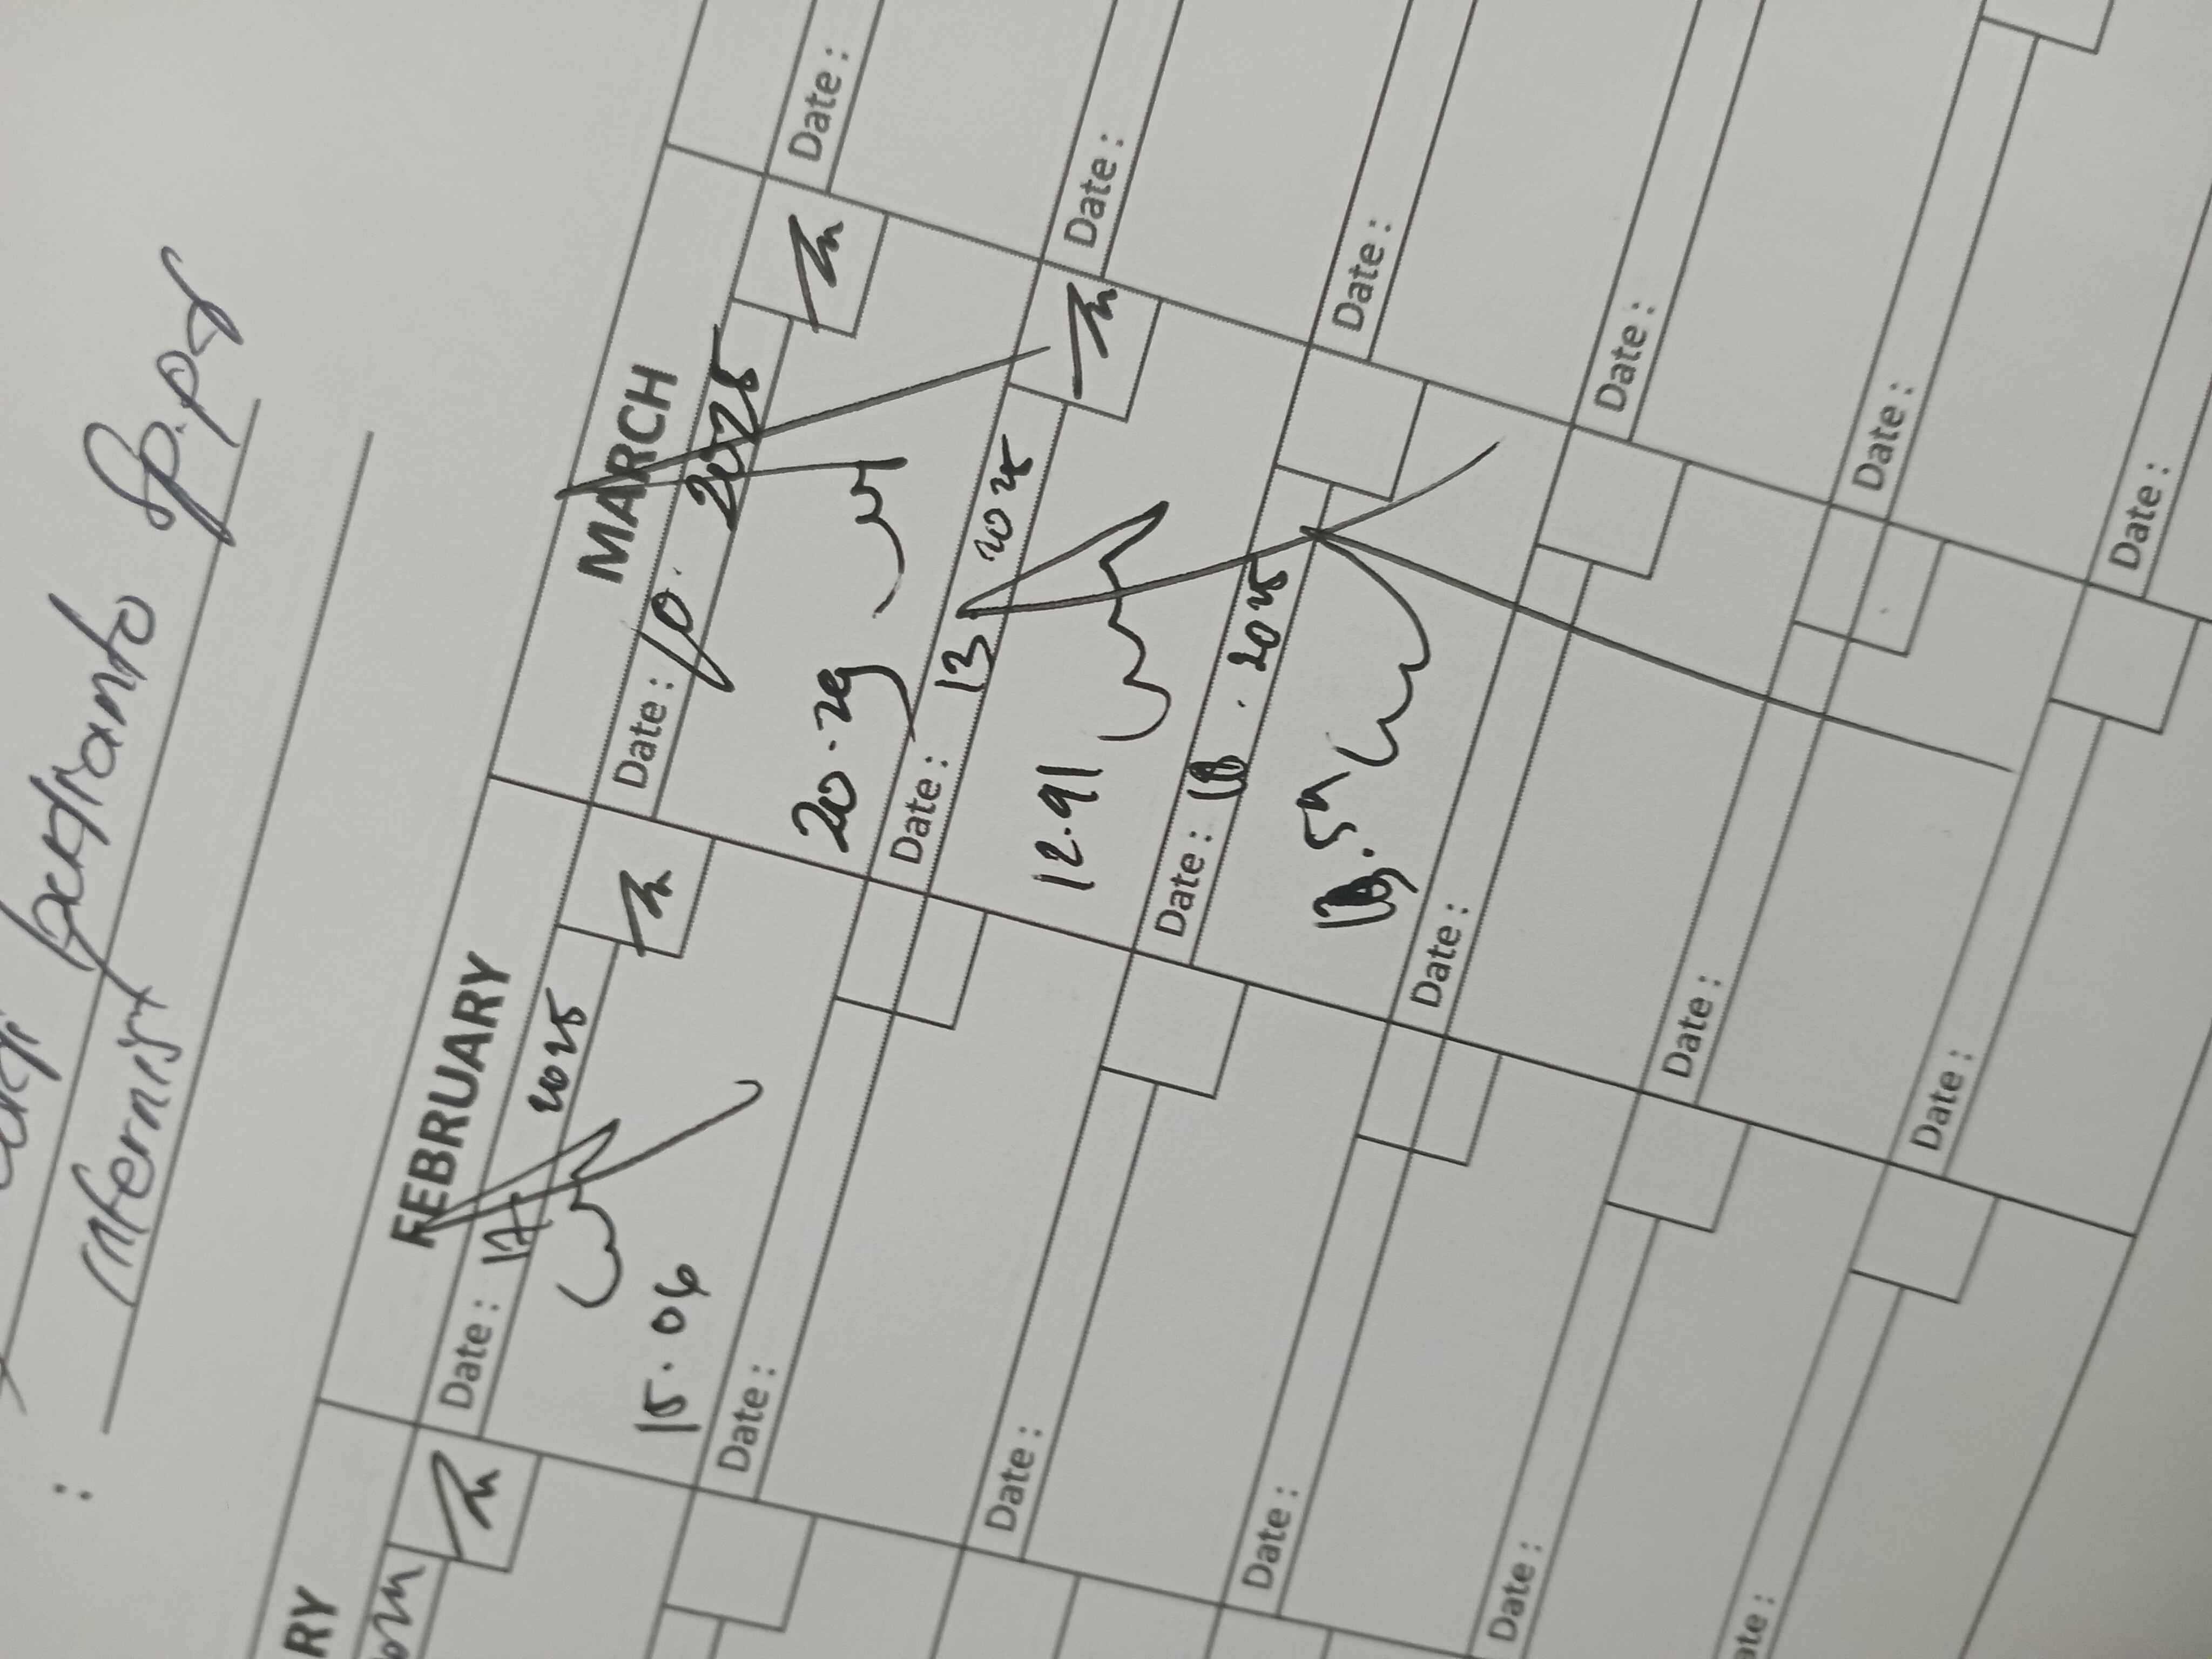 Sp.PD
Internist
RY
FEBRUARY
MARCH
Date : 17 2025
15.06
Date : 10. 2025
20.29
Date : 13 2025
12.91
Date : 18 . 2025
Date :
Date :
Date :
Date :
Date :
Date :
Date :
Date :
Date :
Date :
Date :
Date :
Date :
Date :